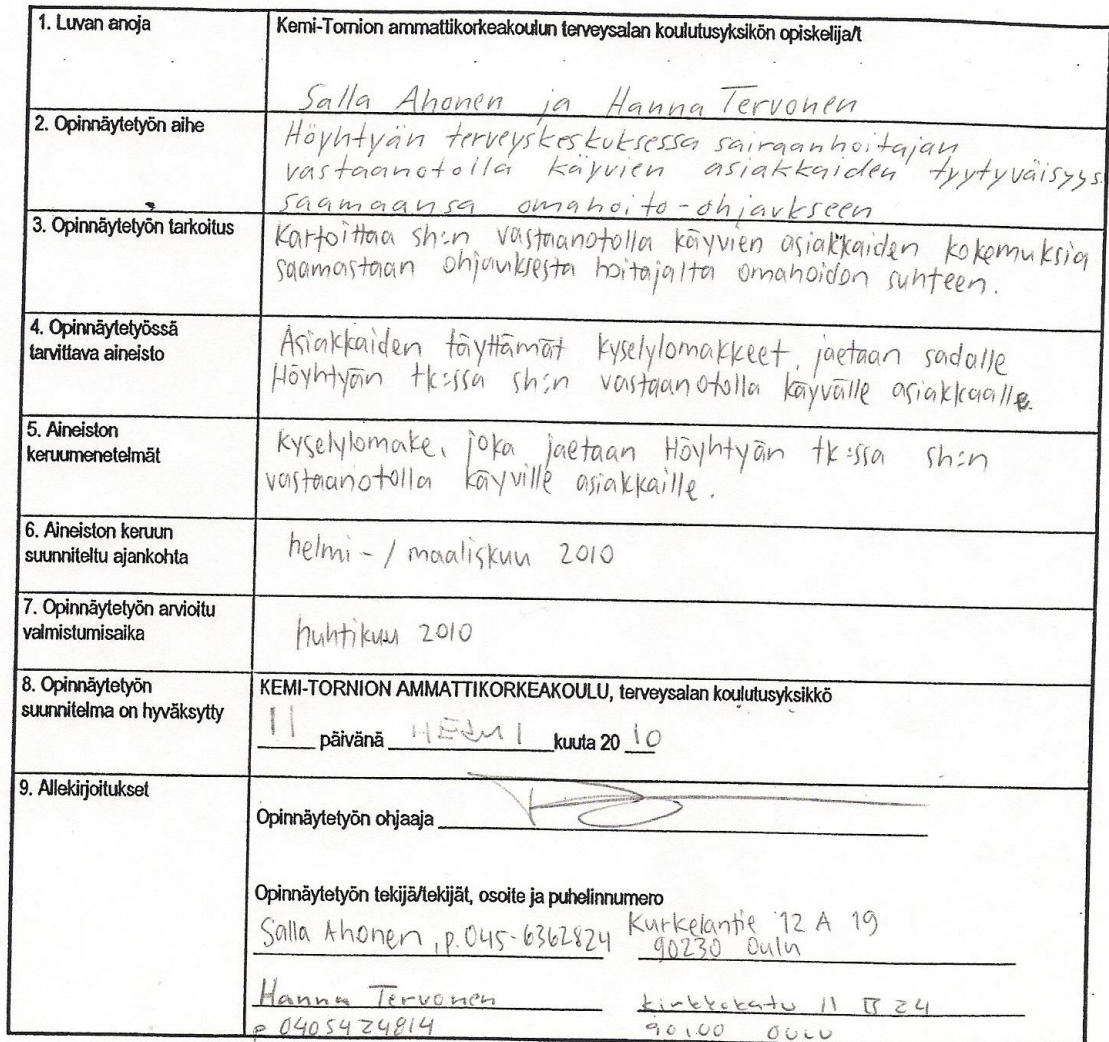 1. Luvan anoja
Kemi-Tornion ammattikorkeakoulun terveysalan koulutusyksikön opiskelija/t
Salla Ahonen ja Hanna Tervonen
2. Opinnäytetyön aihe
Höyhtyän terveyskeskuksessa sairaanhoitajan
vastaanotolla käyvien asiakkaiden tyytyväisyys
saamaansa omahoito-ohjaukseen
3. Opinnäytetyön tarkoitus
Kartoittaa sh:n vastaanotolla käyvien asiakkaiden kokemuksia
saamastaan ohjauksesta hoitajalta omahoidon suhteen.
4. Opinnäytetyössä
tarvittava aineisto
Asiakkaiden täyttämät kyselylomakkeet, jaetaan sadalle
Höyhtyän tk:ssa sh:n vastaanotolla käyvälle asiakkaalle.
5. Aineiston
keruumenetelmät
Kyselylomake, joka jaetaan Höyhtyän tk:ssa sh:n
vastaanotolla käyville asiakkaille.
6. Aineiston keruun
suunniteltu ajankohta
helmi- / maaliskuu 2010
7. Opinnäytetyön arvioitu
valmistumisaika
huhtikuu 2010
8. Opinnäytetyön
suunnitelma on hyväksytty
KEMI-TORNION AMMATTIKORKEAKOULU, terveysalan koulutusyksikkö
11 päivänä HELMI kuuta 20 10
9. Allekirjoitukset
Opinnäytetyön ohjaaja
Opinnäytetyön tekijä/tekijät, osoite ja puhelinnumero
Salla Ahonen, p. 045-6362824 Kurkelantie 12 A 19
90230 Oulu
Hanna Tervonen kirkkokatu 11 B 24
p 0405424814 90100 OULU